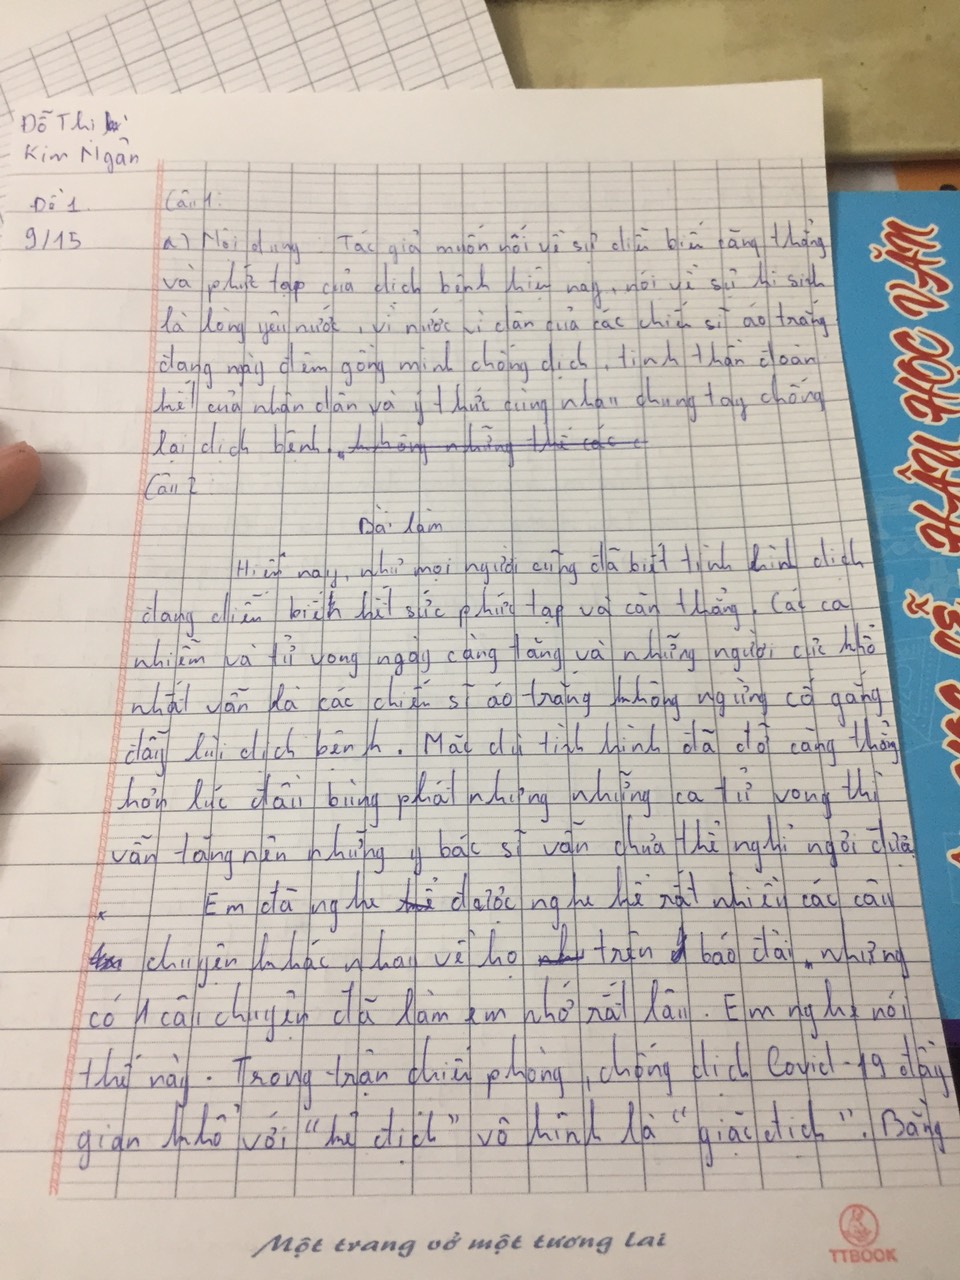 Đỗ Thị
Kim Ngân
Đề 1
9/15
Câu 1:
a) Nội dung: Tác giả muốn nói về sự diễn biến căng thẳng
và phức tạp của dịch bệnh hiện nay, nói về sự hi sinh
là lòng yêu nước, vì nước vì dân của các chiến sĩ áo trắng
đang ngày đêm gồng mình chống dịch, tinh thần đoàn
kết của nhân dân và ý thức cùng nhau chung tay chống
lại dịch bệnh. không những thế các c
Câu 2:
Bài làm
Hiện nay, như mọi người cũng đã biết tình hình dịch
đang diễn biến hết sức phức tạp và căn thẳng. Các ca
nhiễm và tử vong ngày càng tăng và những người cực khổ
nhất vẫn là các chiến sĩ áo trắng không ngừng cố gắng
đẩy lùi dịch bệnh. Mặc dù tình hình đã đỡ căng thẳng
hơn lúc đầu bùng phát nhưng những ca tử vong thì
vẫn tăng nên những y bác sĩ vẫn chưa thể nghỉ ngơi được
Em đã nghe được nghe kể rất nhiều các câu
chuyện khác nhau về họ trên báo đài, nhưng
có 1 câu chuyện đã làm em nhớ rất lâu. Em nghe nói
thế này. Trong trận chiến phòng, chống dịch Covid-19 đầy
gian khổ với "kẻ địch" vô hình là "giặc dịch". Bằng
Một trang vở một tương lai
TTBOOK
HẬU HỌC VĂN